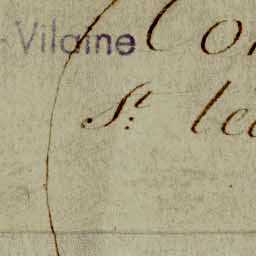 -Vilaine Co
St: lé